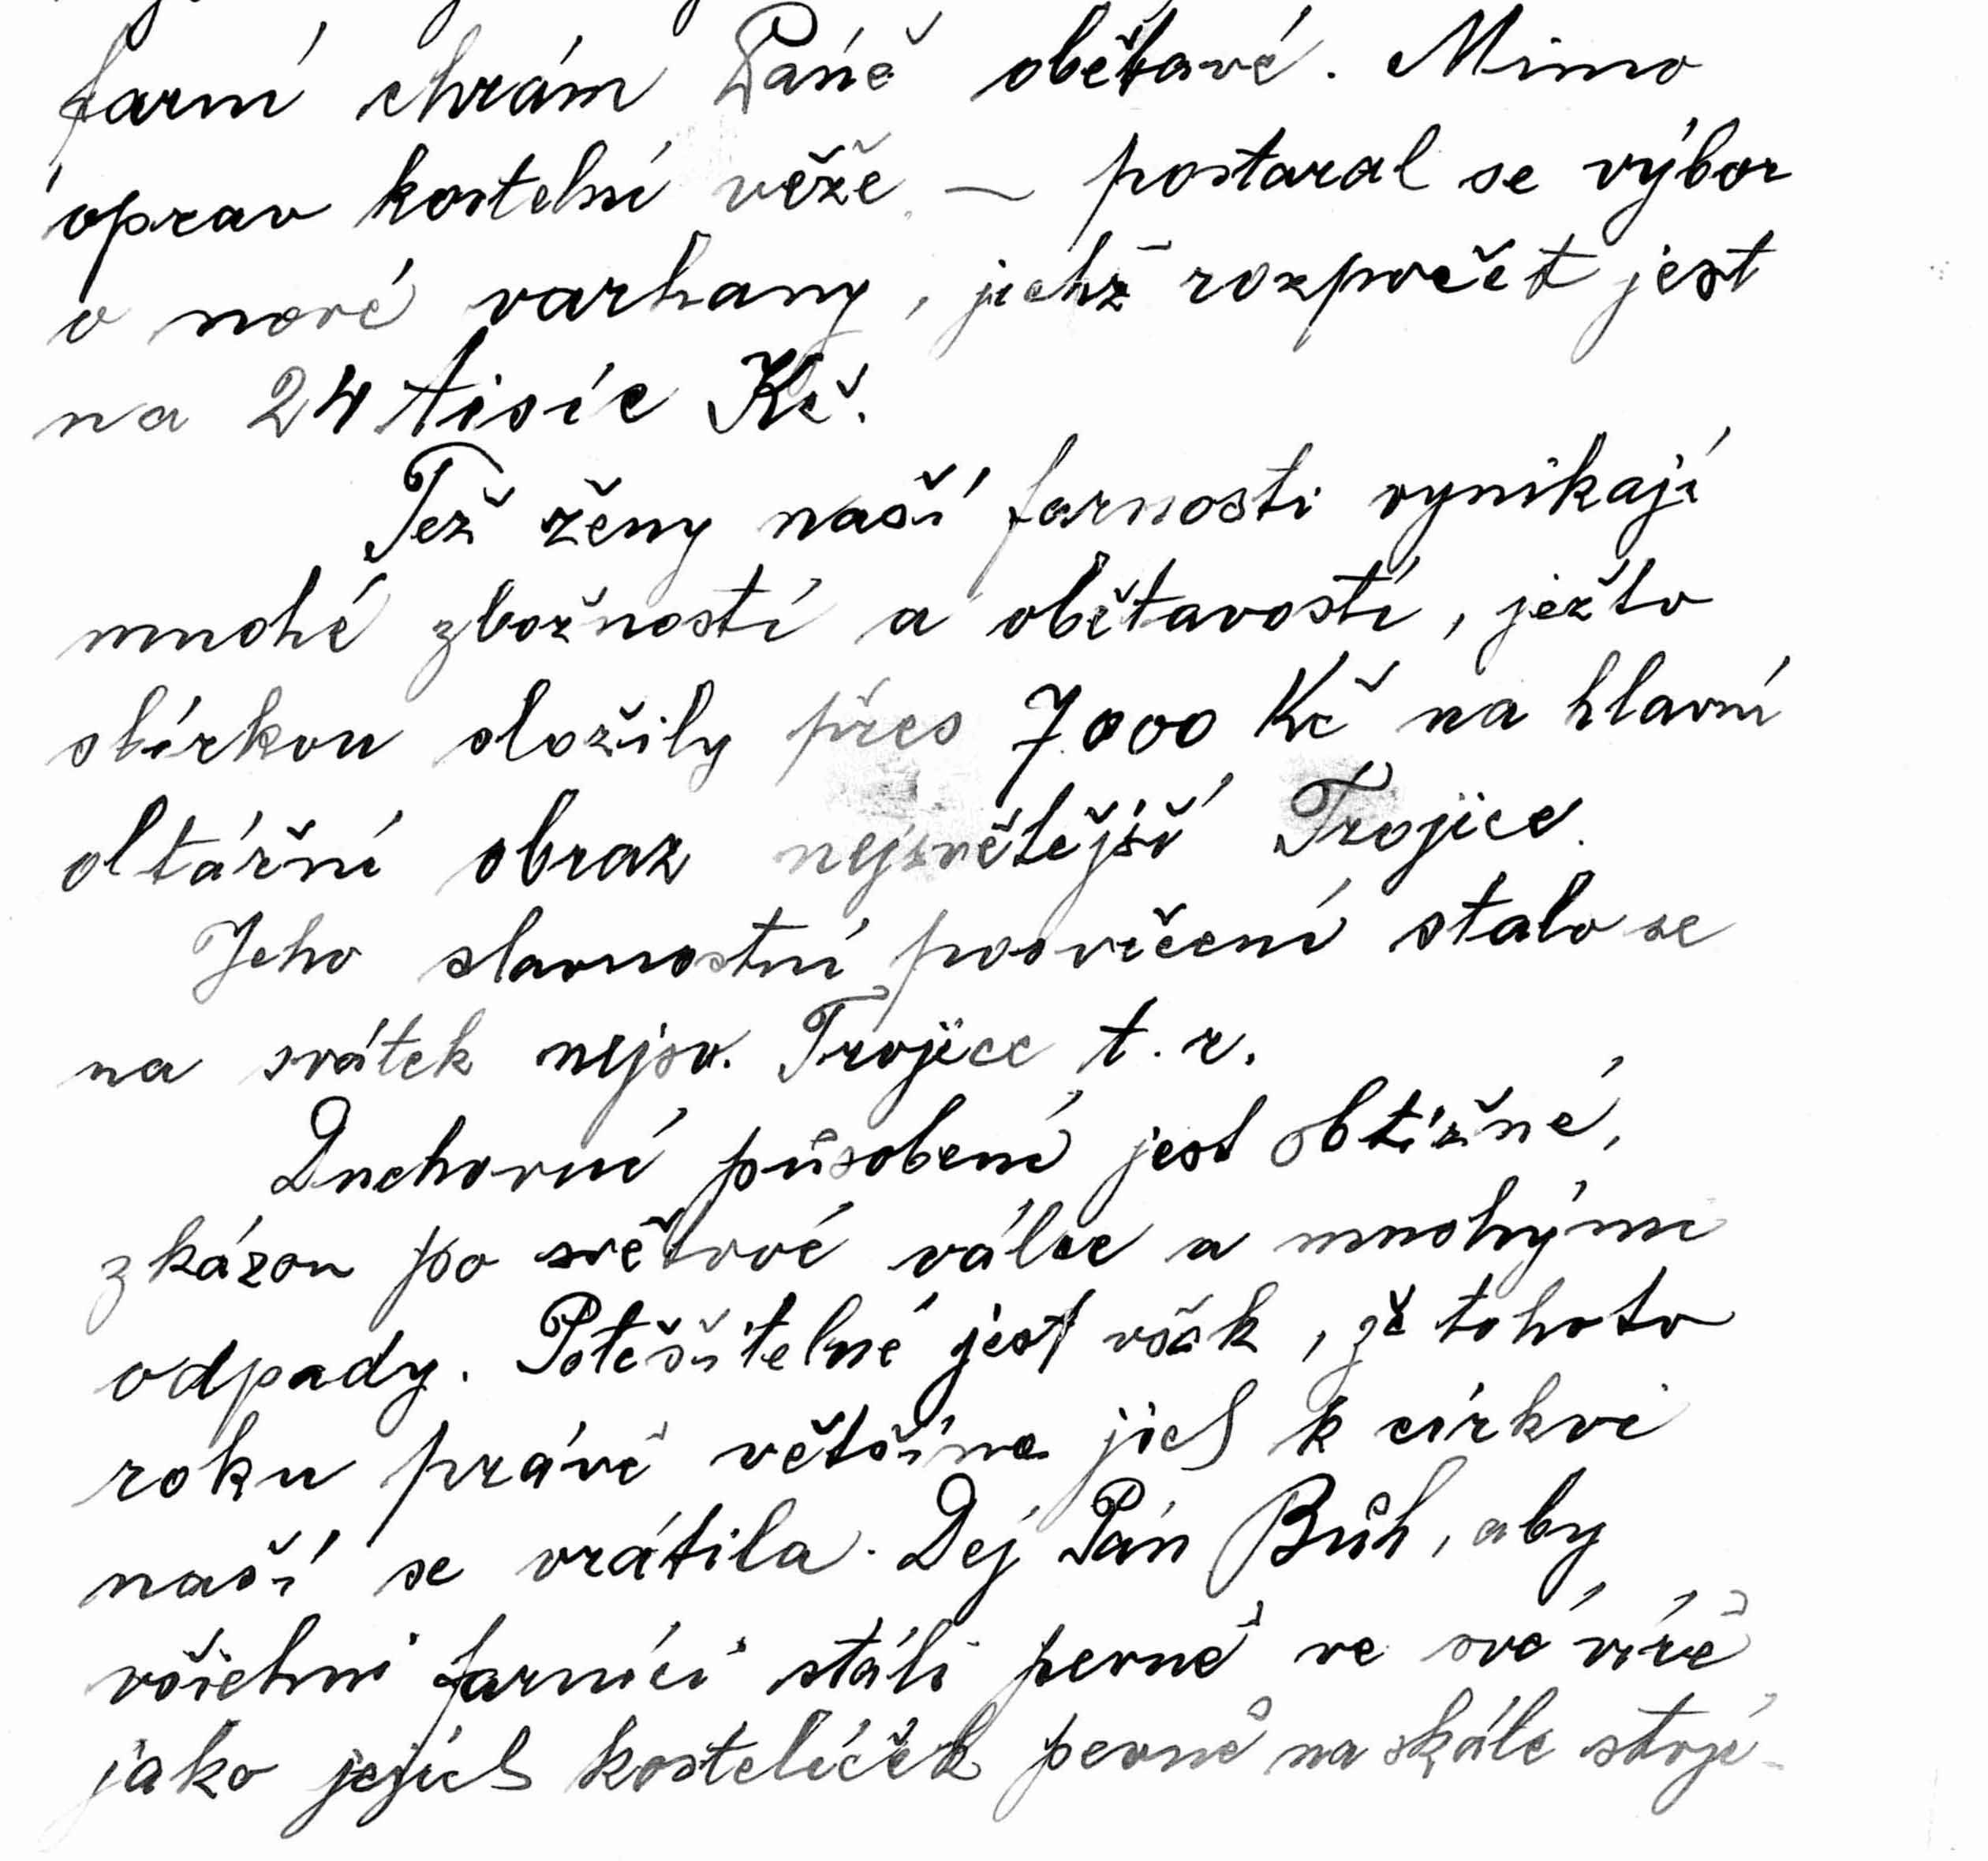 farní chrám Páně obětavé. Mimo
oprav kostelní věže – postaral se výbor
o nové varhany, jichž rozpočet jest
na 24 tisíc Kč.
Též ženy naší farnosti vynikají
mnohé zbožností a obětavostí, ježto
sbírkou složily přes 7000 Kč na hlavní
oltářní obraz nejsvětější Trojice.
Jeho slavnostní posvěcení stalo se
na svátek nejsv. Trojice t. r.
Duchovní působení jest obtížné,
zkázou po světové válce a mnohými
odpady. Potěšitelné jest však, že tohoto
roku právě většina jich k církvi
naší se vrátila. Dej Pán Bůh, aby
všichni farníci stáli pevně ve své víře
jako jejich kostelíček pevně na skále stojí